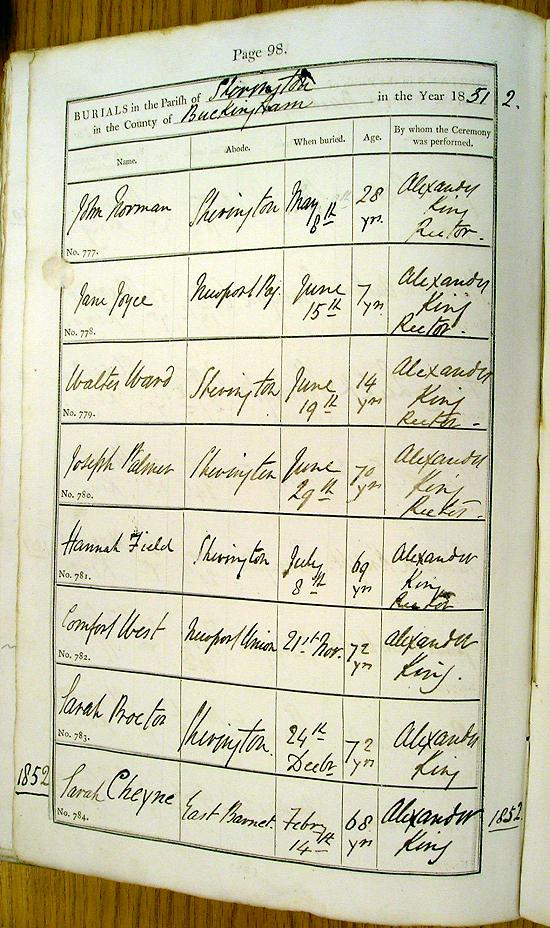 Page 98.
BURIALS in the Parish of Sherington
in the County of Buckingham in the Year 1851 2.
Name. Abode. When buried. Age. By whom the Ceremony was performed.
John Norman Sherington May 8th 28 yrs. Alexander King Rector.
No. 777.
Jane Joyce Newport Pag. June 15th 7 yrs Alexander King Rector.
No. 778.
Walter Ward Sherington June 19th 14 yrs Alexander King Rector.
No. 779.
Joseph Palmer Sherington June 29th 70 yrs Alexander King Rector.
No. 780.
Hannah Field Sherington July 8th 69 yrs Alexander King Rector
No. 781.
Comfort West Newport Union 21st Nov. 72 yrs Alexander King.
No. 782.
Sarah Proctor Sherington. 24th Decbr 72 yrs Alexander King
No. 783.
1852 Sarah Cheyne East Barnet. Febry 14th 68 yrs Alexander King 1852.
No. 784.